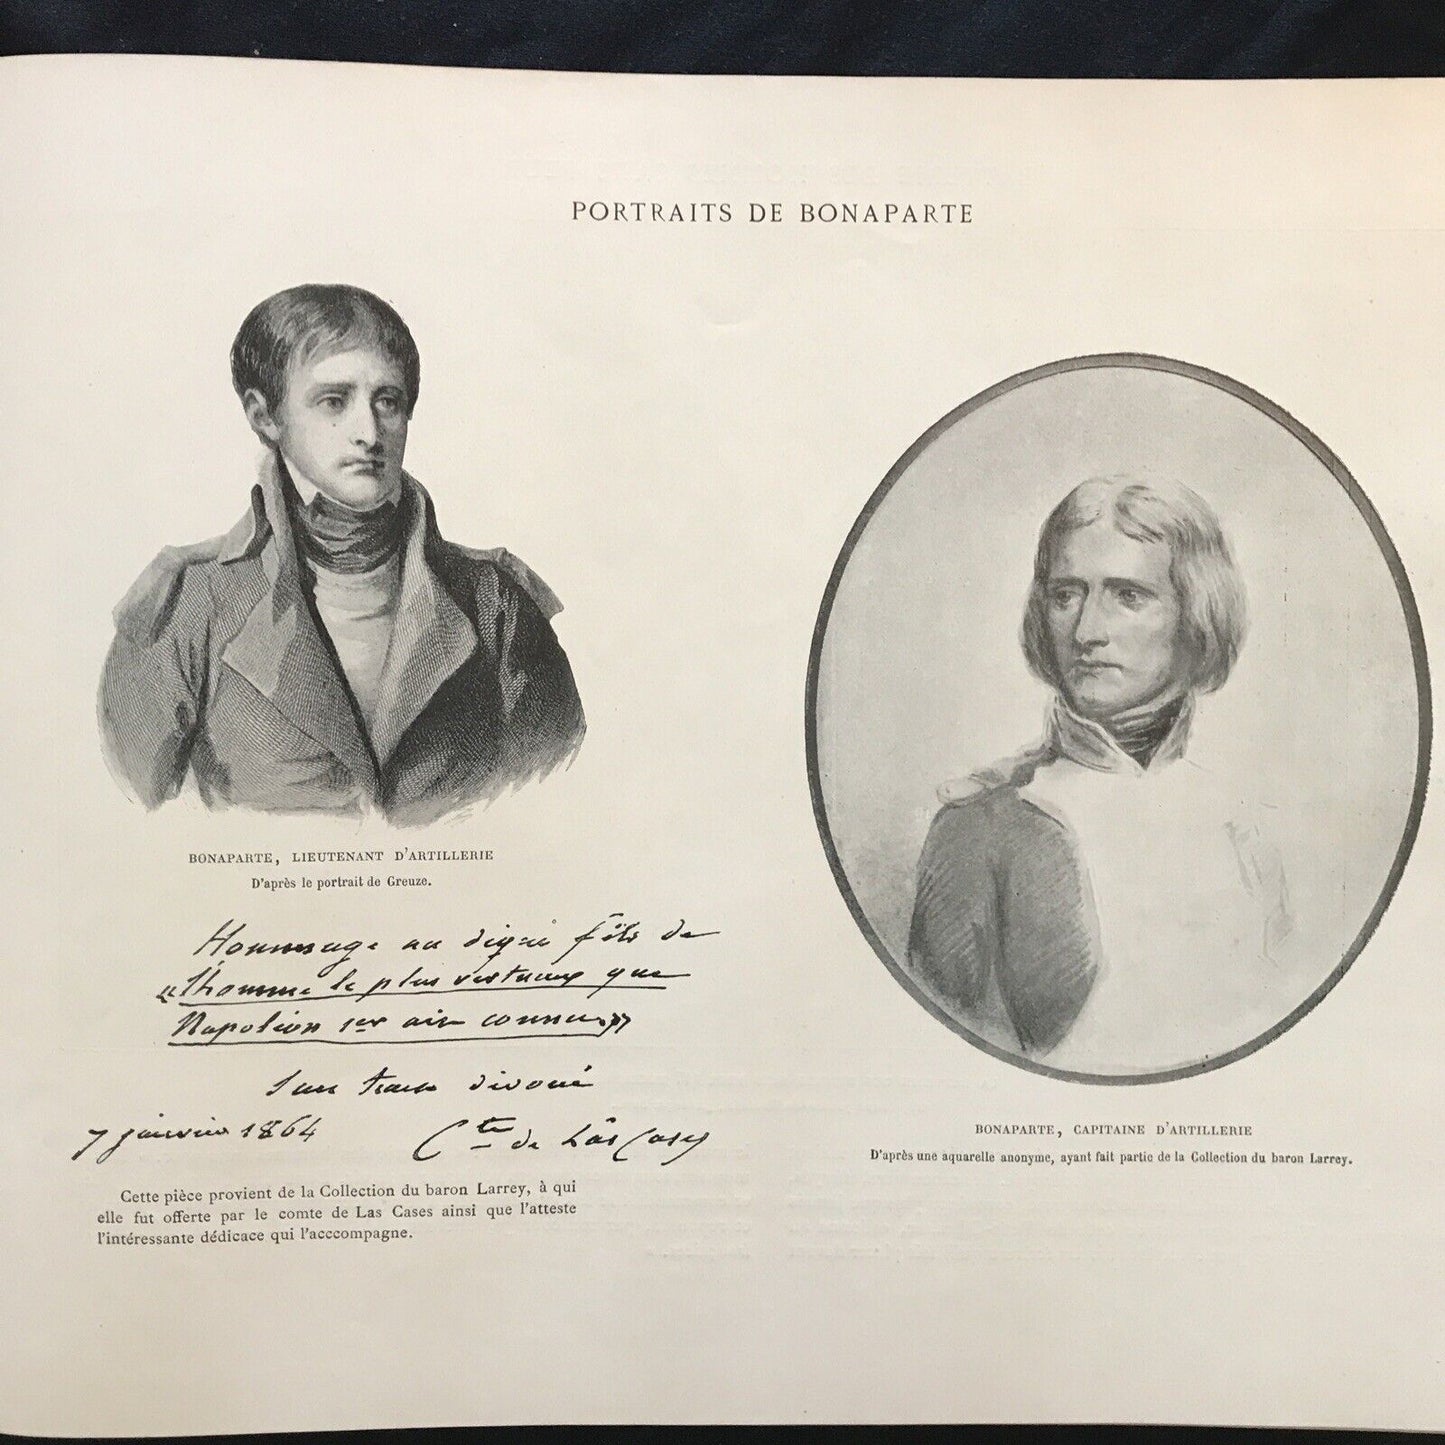 PORTRAITS DE BONAPARTE
BONAPARTE, LIEUTENANT D'ARTILLERIE
D'après le portrait de Greuze.
Hommage au digne fils de
"l'homme le plus vertueux que
Napoléon 1er ait connu"
Son tout dévoué
7 janvier 1864 Cte de Las Cases
Cette pièce provient de la Collection du baron Larrey, à qui
elle fut offerte par le comte de Las Cases ainsi que l'atteste
l'intéressante dédicace qui l'acccompagne.
BONAPARTE, CAPITAINE D'ARTILLERIE
D'après une aquarelle anonyme, ayant fait partie de la Collection du baron Larrey.